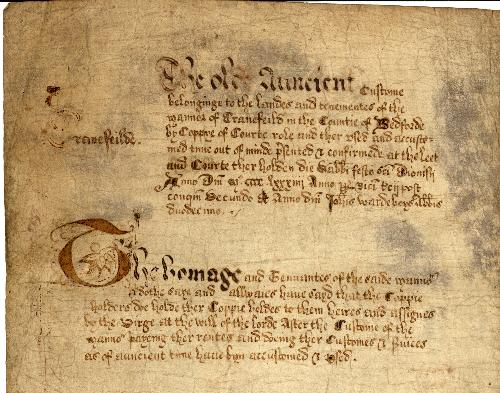 The old Auncient Custome
belonginge to the landes and tenementes of the
mannor of Cranefeild in the Countie of Bedforde
by Coppye of Courte role and ther vsed and accusto-
med tyme out of minde &
confirmede at the leet
and Courte ther holden die
festo sci Dionisii
Anno Dm
Anno
post
conqm Secundo & Anno Dm Johis
abbis
duodecimo.
Cranefeilde.
The homage and Tennantes of the saide mannor
dothe saye and allwaies have sayd that the Coppie
holders doe holde ther Coppie holdes to them heires and assignes
by the Virge at the will of the lorde After the Custome of the
mannor payeng ther rentes and doeing ther Customes & suices
as of auncient time haue byn accustomed & vsed.